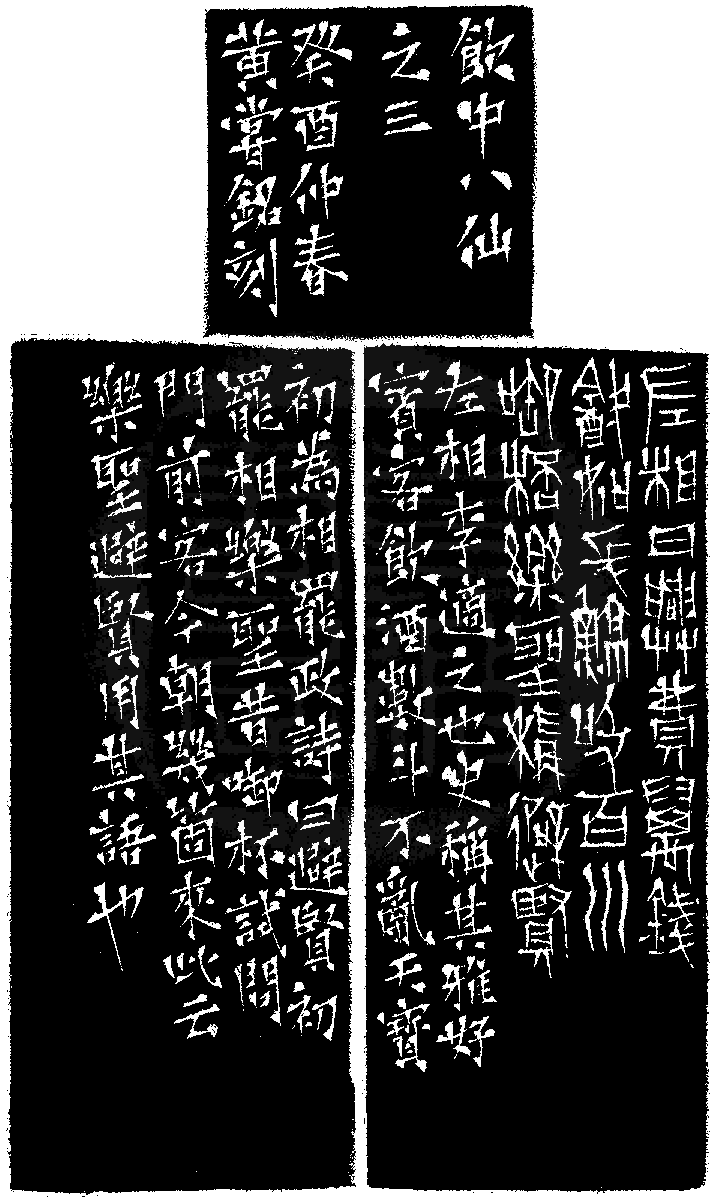 飲中八仙
之三
癸酉仲春
黃嘗銘刻
左相日興費萬錢
飲如長鯨吸百川
啣桮樂聖稱避賢
左相李適之也史稱其雅好
賓客飲酒數斗不亂天寶
初為相罷政詩曰避賢初
罷相樂聖昔啣杯試問
門前客今朝幾箇來此云
樂聖避賢用其語也